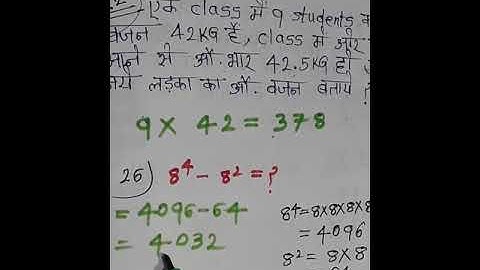 एक class में 9 students का
वजन 42KG है, class में और
जाने से औ. भार 42.5KG हो
लड़का का औ. वजन बताये ?
9 × 42 = 378
26) 8⁴ - 8² = ?
= 4096-64
= 4032
8⁴ = 8×8×8×8
= 4096
8² = 8×8